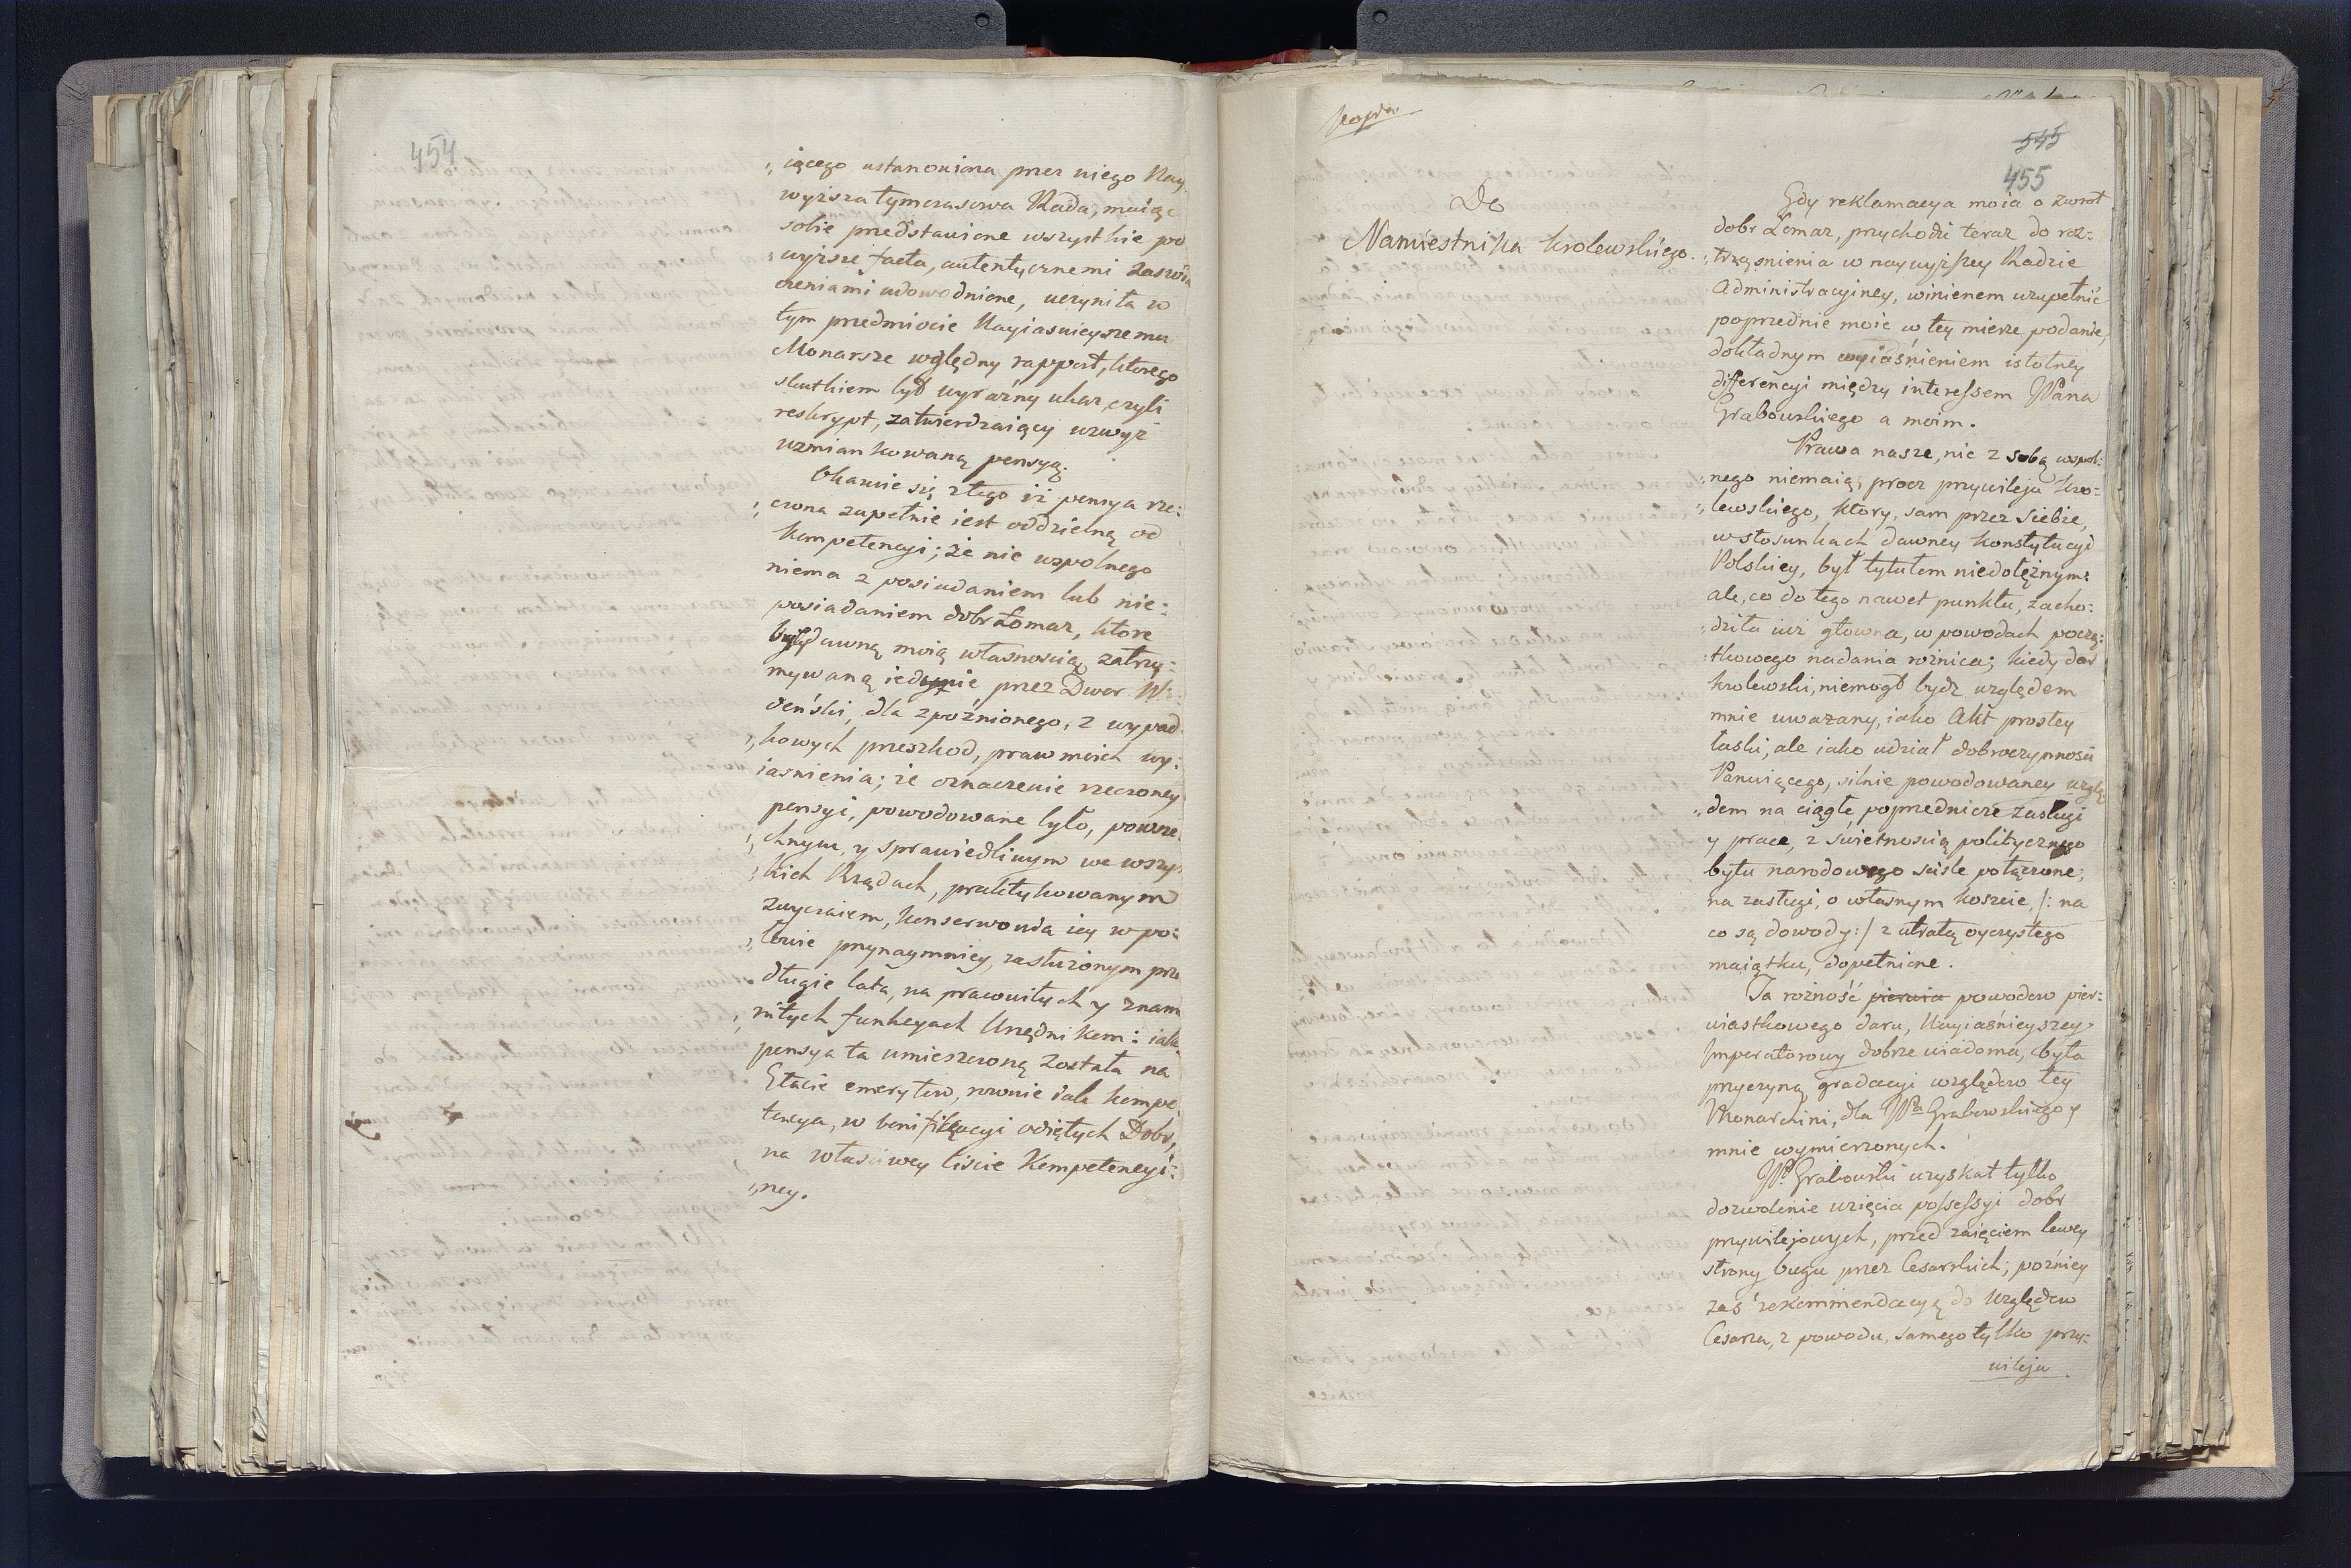 454
„iącego ustanowiona przez niego Nay-
wyższa tymczasowa Rada, maiąc
sobie przedstawione wszystkie po
„wyższe facta, autentycznemi zaswia
czeniami udowodnione, uczyniła w
tym przedmiocie Nayiasnieyszemu
Monarsze względny rapport, ktorego
skutkiem był wyraźny ukaz, czyli
reskrypt, zatwierdzaiący wzwyż
wzmiankowaną pensyą.
Okazuie się z tego iż pensya rze:
„czona zupełnie iest oddzielną od
kompetencyi; że nic wspolnego
niema z posiadaniem lub nie:
posiadaniem dobr Łomaz, ktore
były dawną moią własnoscią, zatrzy:
mywaną iedynie przez Dwor Wi:
deński, dla zpoźnionego, z wypad
„kowych przeszkod, praw moich wy:
iasnienia; że oznaczenie rzeczoney
pensyi, powodowane było, powsze
„chnym, y sprawiedliwym we wszy
„tkich Rządach, praktykowanym
zwyczaiem, konserwowda iey w po:
„łowie przynaymniey, zasłużonym prze
długie lata, na pracowitych y znam
„nitych funkcyach Urzędnikom: iako
pensya ta umieszczoną została na
Etacie emerytow, rownie iak kompe
tencya, w bonifikacyi odiętych Dobr,
na właściwey liście Kompetencyi:
„ney.
Kopia
545
455
Do
Namiestnika Krolewskiego.
Gdy reklamacya moia o zwrot
dobr Łomaz, przychodzi teraz do roz:
„trząsnienia w naywyższey Radzie
Administracyiney, winienem uzupełnić
poprzednie moie w tey mierze podanie,
dokładnym wyiaśnieniem istotney
differencyi między interessem JPana
Grabowskiego a moim.
Prawa nasze, nic z sobą wspol:
„nego niemaią, procz przywileju Kro:
„lewskiego, ktory, sam przez siebie,
w stosunkach dawney konstytucyi
Polskiey, był tytułem niedołężnym:
ale, co do tego nawet punktu, zacho:
„dziła iuż głowna, w powodach począ:
tkowego nadania rożnica; kiedy dar
krolewski, niemogł bydz względem
mnie uważany, iako Akt prostey
łaski, ale iako udział dobroczynnosci
Panuiącego, silnie powodowaney wzglę
„dem na ciągłe, poprzednicze zasługi
y prace, z świetnoscią politycznego
bytu narodowego ściśle połączone;
na zasługi, o własnym koszcie, /: na
co są dowody :/ z utratą oyczystego
maiątku, dopełnione.
Ta rożność pierwia powodow pier:
wiastkowego daru, Nayiaśnieyszey
Imperatorowy dobrze wiadoma, była
przyczyną gradacyi względow tey
Monarchini, dla JPa Grabowskiego y
mnie wymierzonych.
JP. Grabowski uzyskał tylko
dozwolenie wzięcia possessyi dobr
przywilejowych, przed zaięciem lewey
strony bugu przez Cesarskich; poźniey
zaś rekommendacyą do Względow
Cesarza, z powodu, samego tylko przy:
wileju